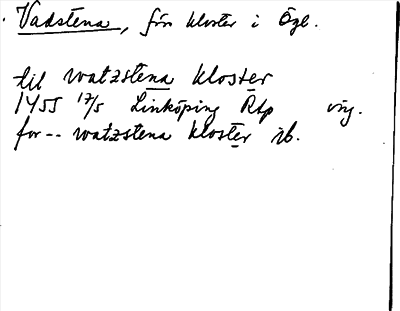 Vadstena, förr kloster i Ögl.
til watzstena kloster
1455 17/5 Linköping Rap vig.
for -- watzstena kloster ib.